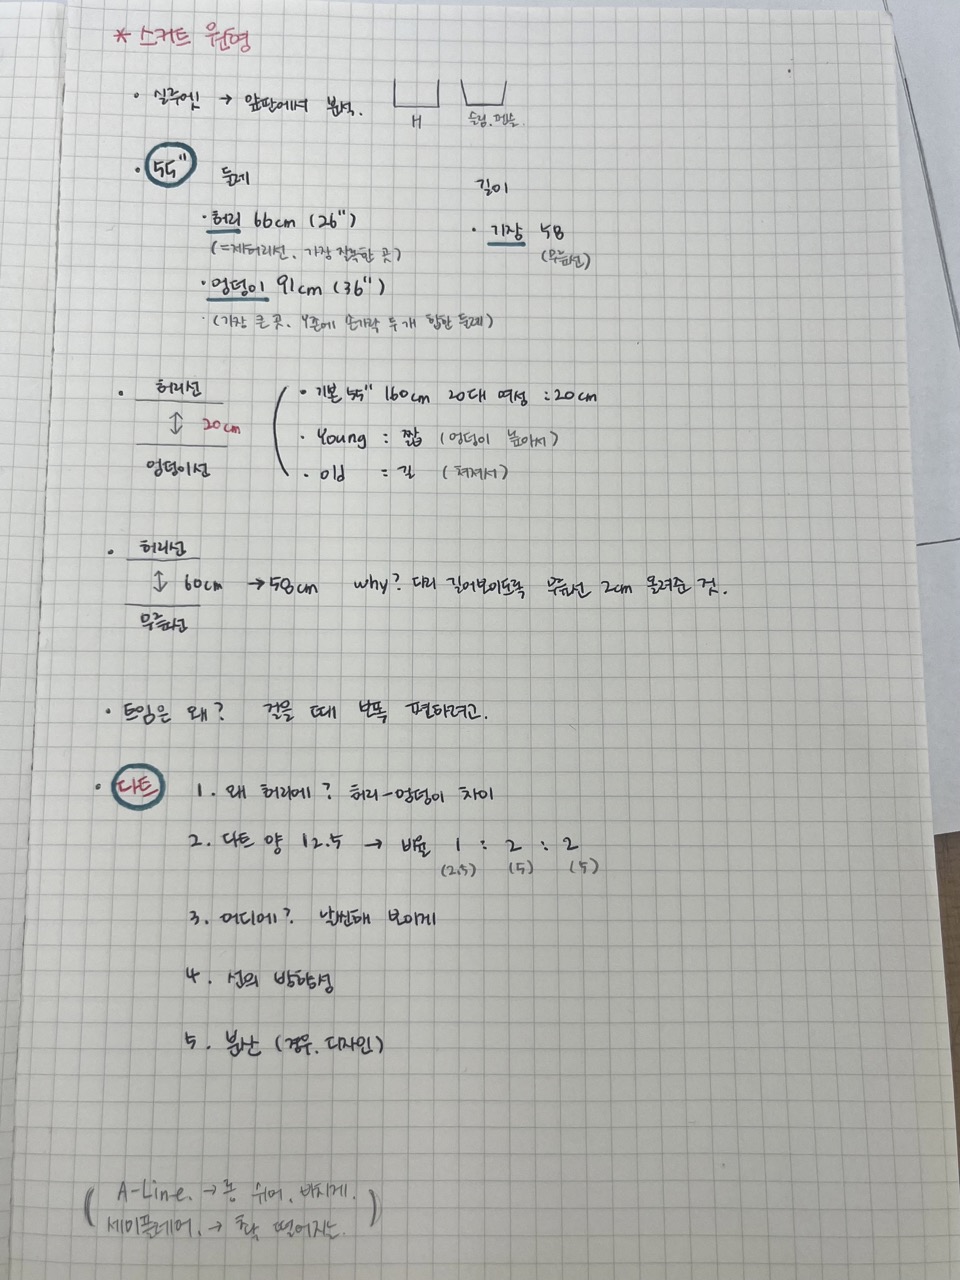 * 스커트 원형
· 실루엣 → 앞판에서 분석.
H 슬림.펜슬.
· 55" 둘레 길이
· 허리 66cm (26") · 기장 58
(=제허리선, 가장 잘록한 곳) (무릎선)
· 엉덩이 91cm (36")
· (가장 큰 곳. 손가락 두개 합한 둘레)
· 허리선 · 기본 55" 160cm 20대 여성 : 20cm
↕ 20cm · Young : 짧 (엉덩이 높아서)
엉덩이선 · old = 길 (쳐져서)
· 허리선
↕ 60cm → 58cm why? 다리 길어보이도록 무릎선 2cm 올려준 것.
무릎선
· 트임은 왜? 걸을 때 보폭 편하려고.
· 다트 1. 왜 허리에? 허리-엉덩이 차이
2. 다트 양 12.5 → 비율 1 : 2 : 2
(2.5) (5) (5)
3. 어디에? 날씬해 보이게
4. 선의 방향성
5. 분산 (경우. 디자인)
A-Line. → 쉬어.
세미플레어. → 촥 떨어지는.